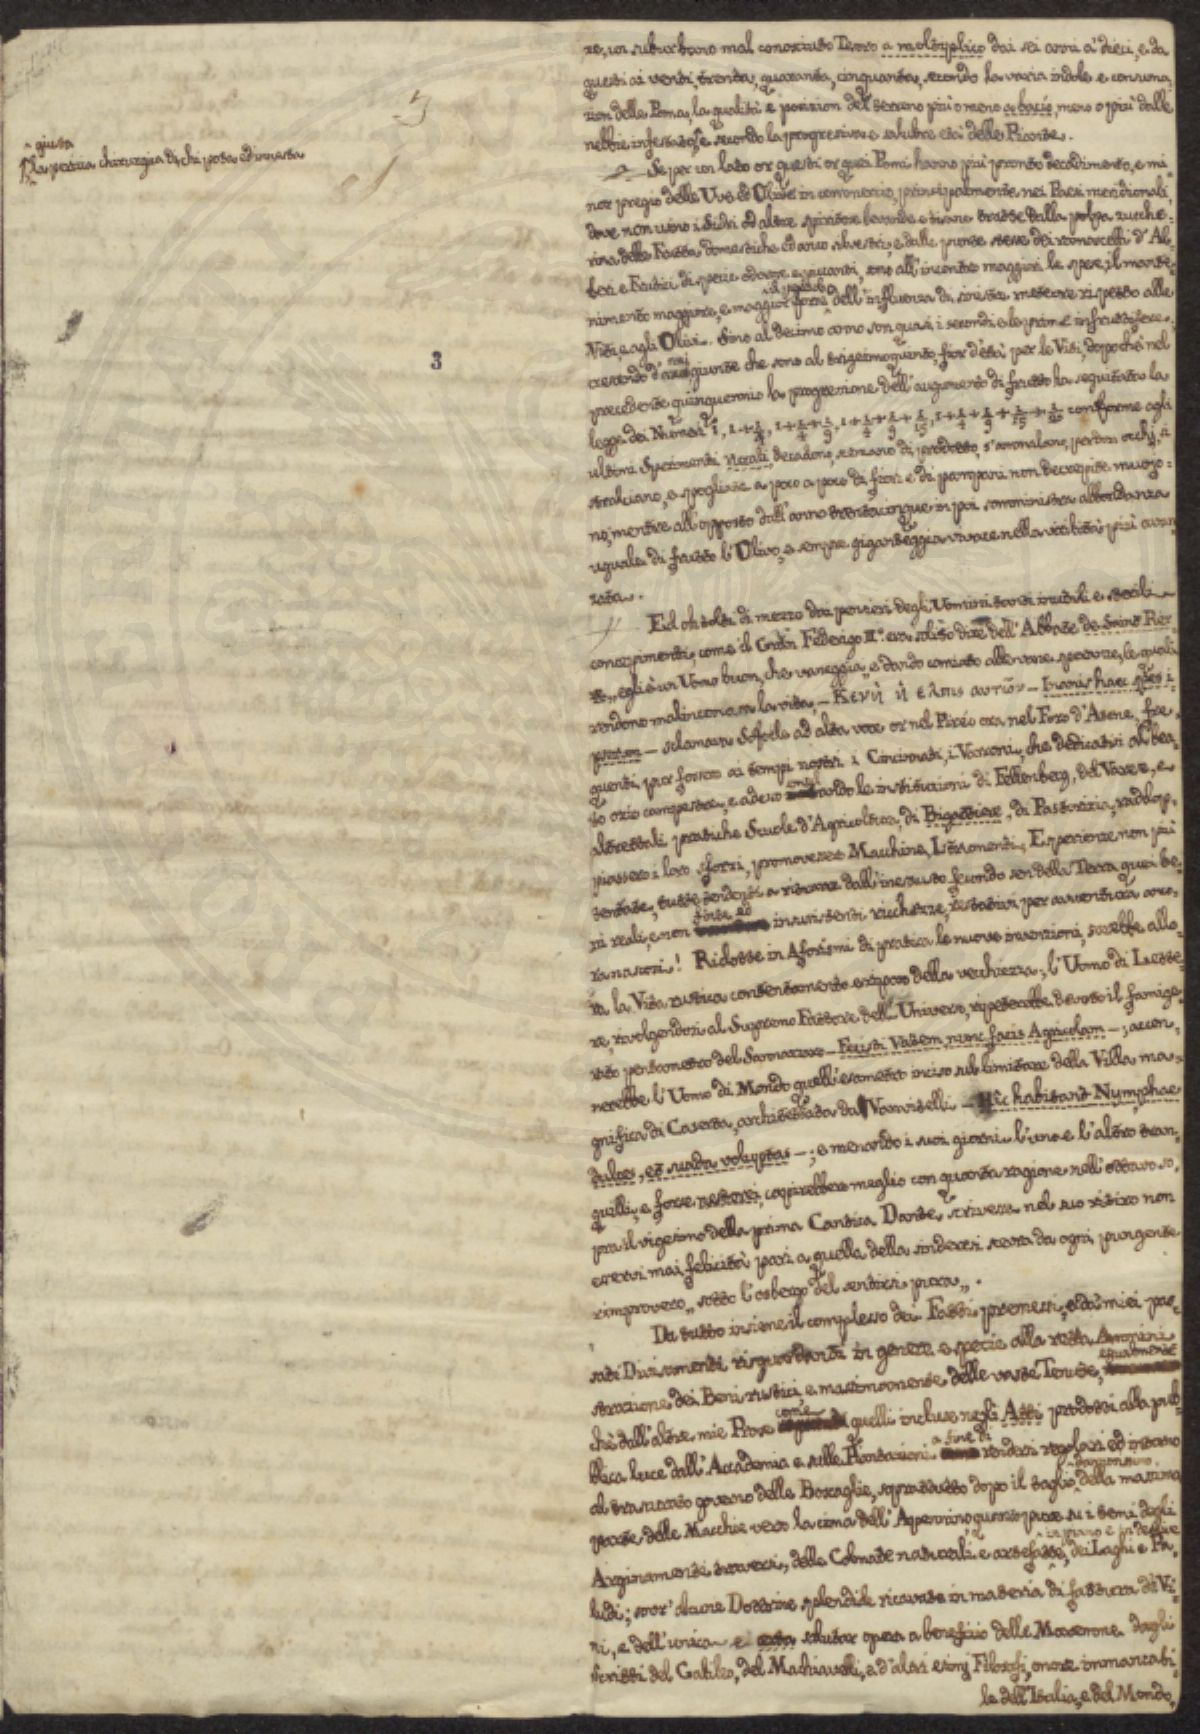 giusta
la pratica chirurgia di chi pota ed innesta
3
re, un suburbano mal conosciuto Tesoro a moltiplico dai sei anni a' dieci, e da
questi ai venti, trenta, quaranta, cinquanta, secondo la varia indole e consuma
zion delle Poma, la qualità e posizion del terreno più o meno a bacìo, meno o più dalle
nebbie infestato, e secondo la progressiva e salubre età delle Piante.
Se per un lato or questi or quei Pomi hanno più pronto decadimento, e mi-
nor pregio delle Uve ed Olive in commercio, principalmente nei Paesi meridionali,
dove non usano i Sidri ed altre spiritose bevande e tisane tratte dalla polpa zucche-
rosa delle Frutta domestiche ed anco silvestri, e dalle punte stesse dei ramoscelli d'Al-
beri e Frutici di specie odorose e piccanti, sono all'incontro maggiori le spese, il mante-
nimento maggiore, e maggior forse dell'influenza di sinistre meteore rispetto alle
Viti, e agli Olivi. Sino al decimo anno son quasi i secondi e le prime infruttifere.
crescendo giunte che sono al trigesimoquinto, fior d'età per le Viti, dopochè nel
precedente quinquennio la progressione dell'augumento di frutto ha seguitato la
legge dei Numeri conforme agli
ultimi Sperimenti decadono, scemano di prodotto, s'ammalano, perdon occhj, si
stralciano, e spogliate a poco a poco di fiori e di pampani non decrepite muojo-
no, mentre all'opposto dall'anno trentacinque in poi somministra abbondanza
uguale di frutto l'Olivo, e sempre giganteggia vivace nella vecchiezza più avan
zata.
Ed oh tolti di mezzo dai pensieri degli Uomini tanti inutili e sterili
concepimenti, come il Gran Federigo II.° era solito dire dell'Abbate de Saint Pier
re „ egli è un Uomo buon, che vaneggia „ e dando comiato alle vane speranze, le quali
rendono malinconiosa la vita, — Κενὴ ἡ ελπις αυτῶν — Inanis haec spes i-
psorum — sclamava Sofocle ad alta voce or nel Pireo ora nel Foro d'Atene, fre-
quenti pur fossero ai tempi nostri i Cincinnati, i Varroni, che dedicatisi al bea-
to ozio campestre, e adesso le instituzioni di Fellenberg, del Varez, e
altrettali pratiche Scuole d'Agricoltura, di Bigattiere, di Pastorizia, raddop-
piassero i loro sforzi, promovessero Macchine, Istrumenti, Esperienze non più
tentate, tutte tendenti a ritrarre dall'inesausto fecondo sen della Terra quei be-
ni reali, e non finti ed insussistenti ricchezze, restativi per avventura anco-
ra nascosi! Ridotte in Aforismi di pratica le nuove invenzioni, sarebbe allo-
ra la Vita rustica contentamento e riposo della vecchiezza; l'Uomo di Lette-
re, rivolgendosi al Supremo Fattore dell'Universo, ripeterebbe devoto il famige-
rato pentametro del Sannazzaro — Fecisti Vatem, nunc facis Agricolam —; accen-
nerebbe l'Uomo di Mondo quell'esametro inciso sul limitare della Villa ma-
gnifica di Caserta, architettata da Vanvitelli — Hîc habitant Nymphae
dulces, et suada voluptas —; e menando i suoi giorni l'uno e l'altro tran-
quilli, e forse capirebbero meglio con quanta ragione nell'ottavo so-
pra il vigesimo della prima Cantica Dante scrivesse nel suo ritiro non
esservi mai felicità pari a quella della sinderesi scevra da ogni pungente
rimprovero „ sotto l'osbergo del sentirsi pura „.
Da tutto insieme il complesso dei Fatti premessi, e da' miei pas-
sati Divisamenti risguardanti in genere e specie alla retta Ammini
strazione dei Beni rustici, e massimamente delle vaste Tenute, egualmente
chè dall'altre mie Prose come quelli incluse negli Atti prodotti alla pub-
blica luce dall'Accademia e sulle Piantazioni a fine di rendersi regolari ed intorno
al trascurato governo delle Boscaglie, soprattutto dopo il taglio dannosissimo della massima
parte delle Macchie verso la cima dell'Appennino, quanto pure su i temi degli
Arginamenti traversi, delle Colmate naturali e artefatte, in piano e in declive dei Laghi e Pa-
ludi; sovr'alcune Dottrine splendide ricavate in materia di fattura di Vi-
ni, e dell'unica e salutar opera a beneficio delle Maremme dagli
scritti del Galileo, del Machiavelli, e d'altri esimj Filosofi, onore immancabi-
le dell'Italia, e del Mondo,